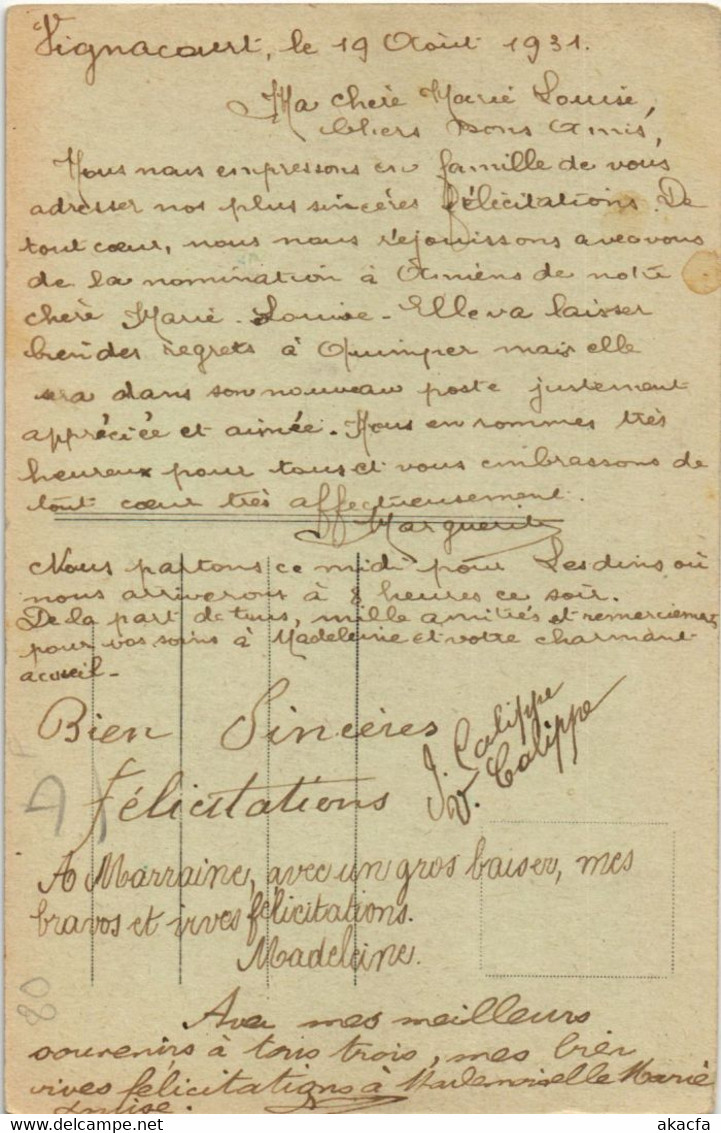 Vignacourt, le 19 Août 1931.
Ma chère Marie Louise,
Chers Bons Amis,
Nous nous empressons en famille de vous
adresser nos plus sincères félicitations. De
tout cœur, nous nous réjouissons avec vous
de la nomination à Amiens de notre
chère Marie-Louise - Elle va laisser
bien des regrets à Quimper mais elle
sera dans son nouveau poste justement
appréciée et aimée. Nous en sommes très
heureux pour tous et vous embrassons de
tout cœur très affectueusement.
Marguerite
Nous partons ce midi pour Lesdins où
nous arriverons à 8 heures ce soir.
De la part de tous, mille amitiés et remerciements
pour vos soins à Madeleine et votre charmant
accueil -
Bien Sincères
Félicitations
J. Calippe
V. Calippe
A Marraine, avec un gros baiser, mes
bravos et vives félicitations.
Madeleine.
80
Avec mes meilleurs
souvenirs à tous trois, mes bien
vives félicitations à Mademoiselle Marie
Louise.
delcampe.net
akacfa